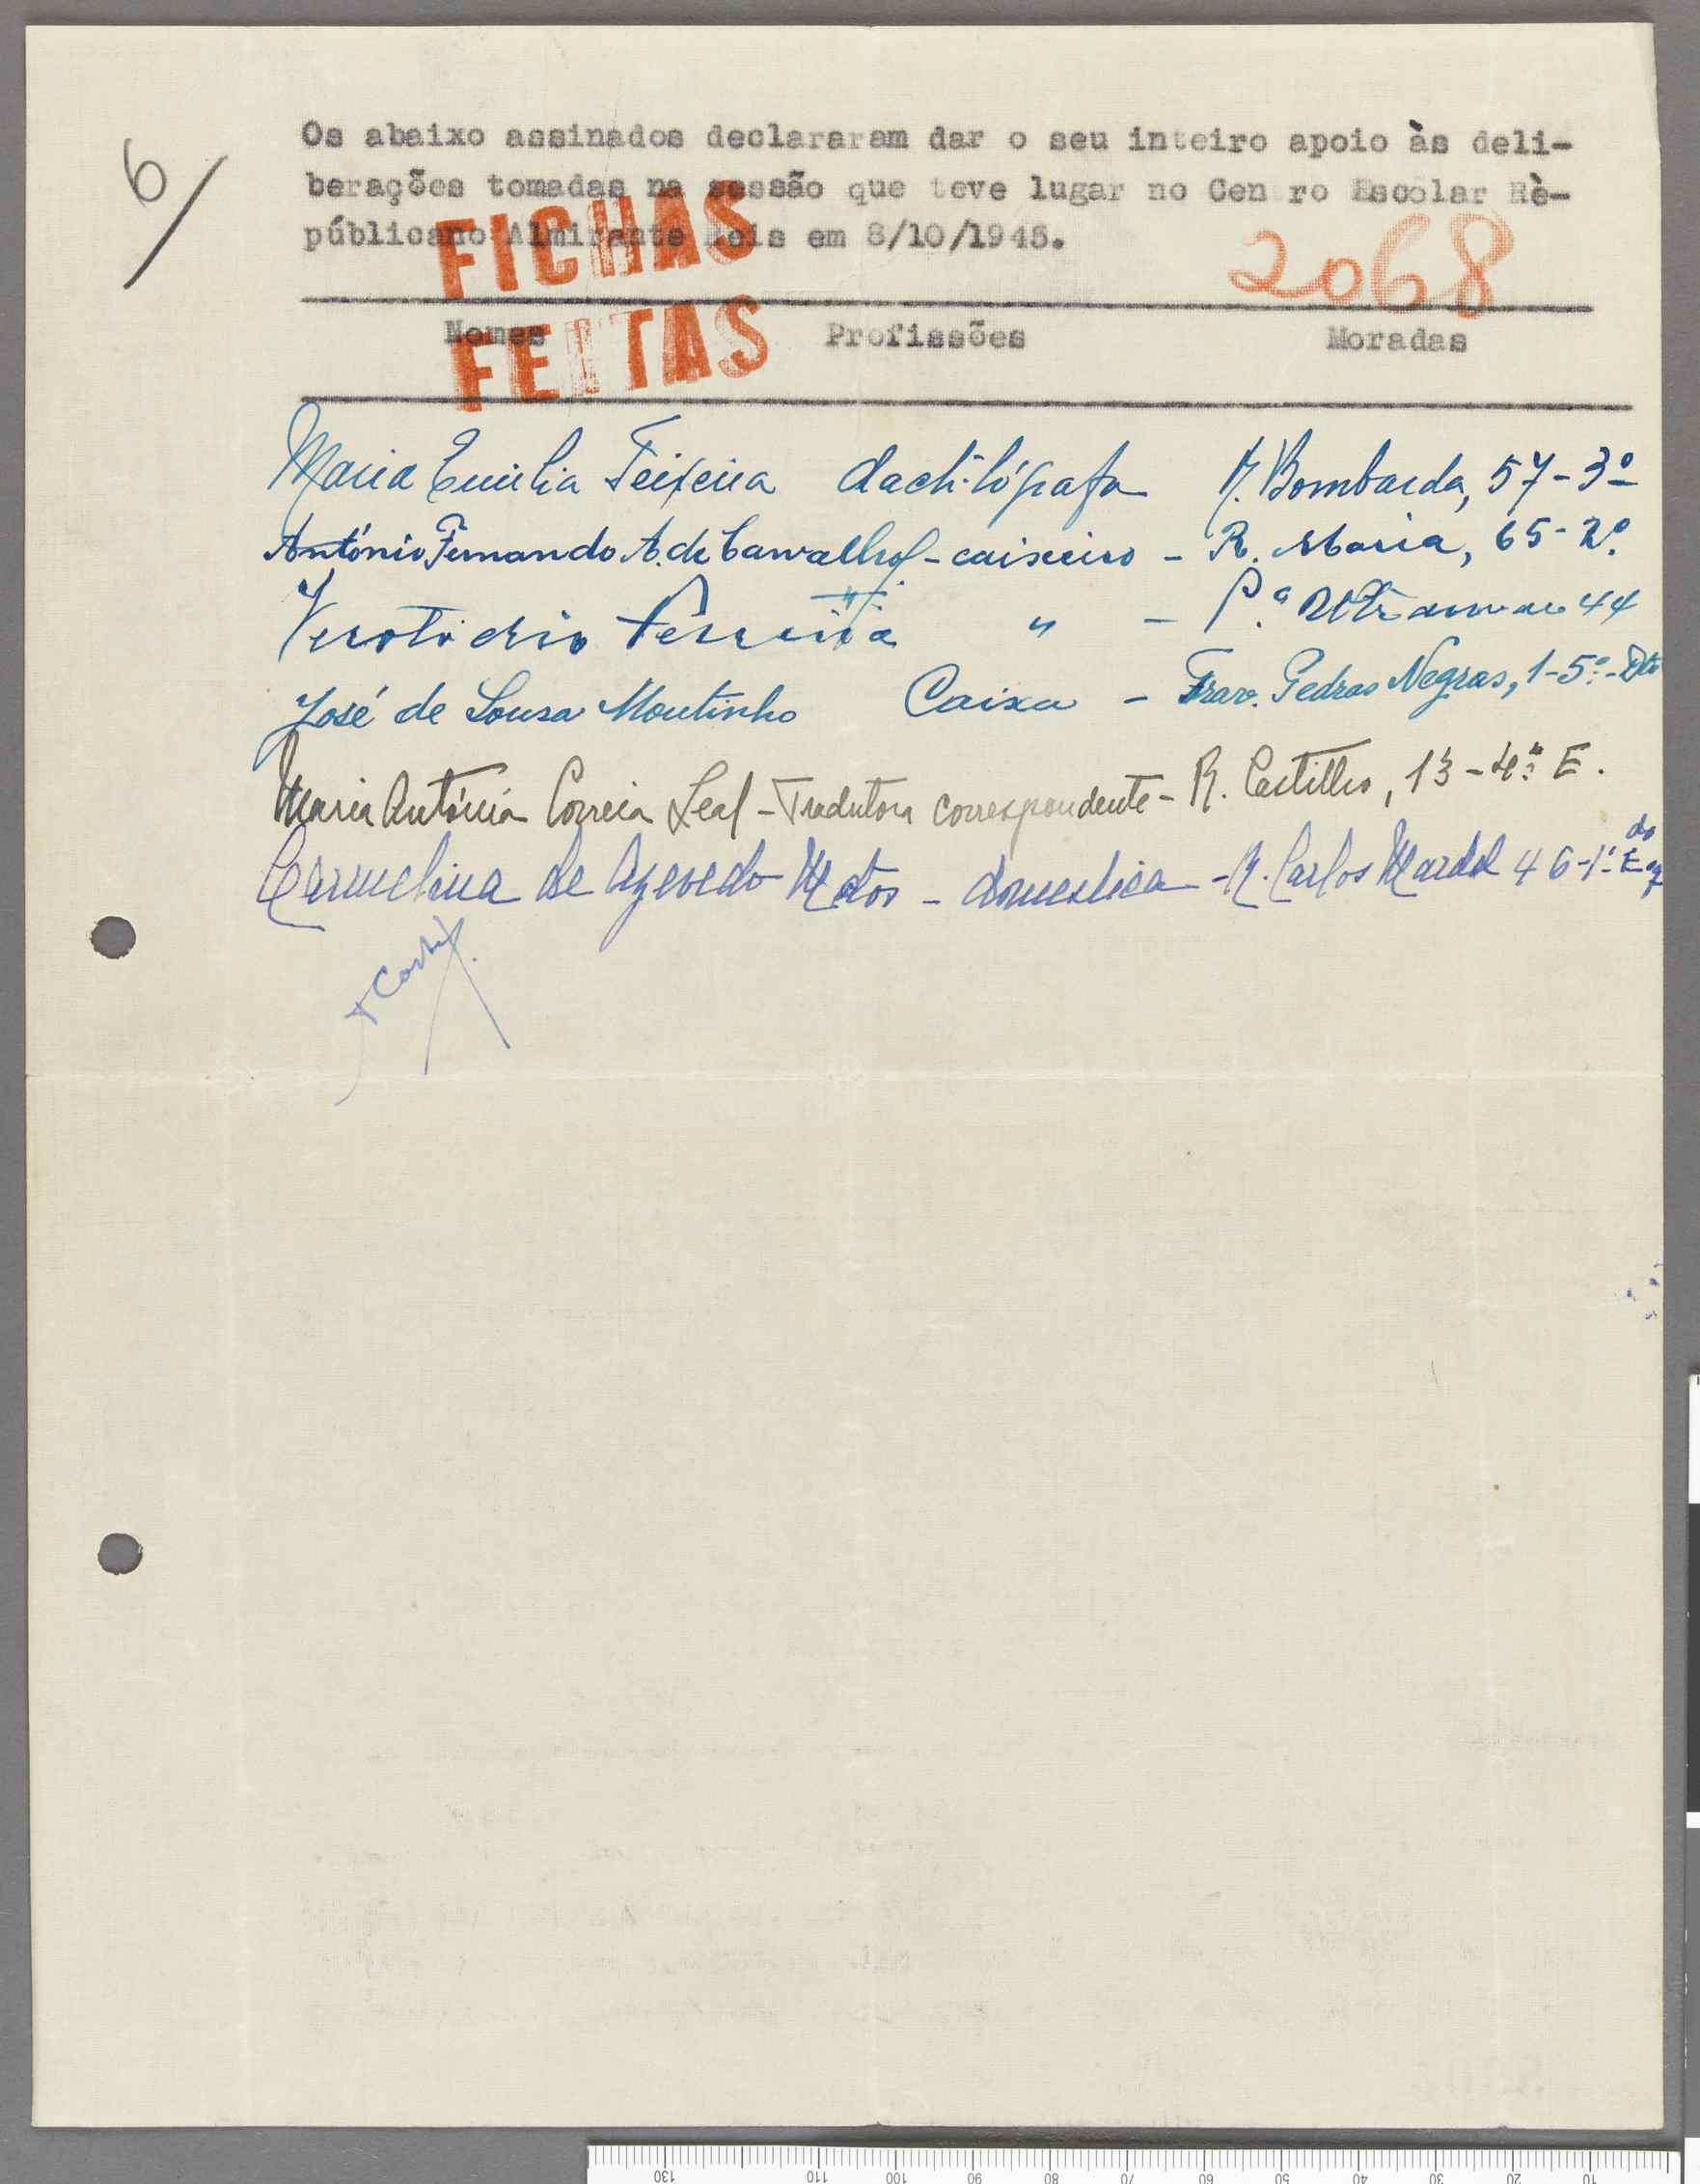 6/
Os abaixo assinados declararam dar o seu inteiro apoio às deli-
berações tomadas na sessão que teve lugar no Cen ro Escolar Rè-
públicano Almirante Reis em 8/10/1945.
FICHAS
FEITAS
2068
Nomes Profissões Moradas
Maria Emilia Teixeira dactilógrafa M. Bombarda, 57-3º
António Fernando A. de Carvalho - caixeiro - R. Maria, 65-2º.
Ferreira " - 44
José de Sousa Moutinho Caixa - Trav. Pedras Negras, 1-5º.-Dto
Maria Antónia Correia Leal - Tradutora correspondente - R. Castilho, 13-4º. E.
Carmelina de Azevedo Matos - domestica - R. Carlos Mardel 46-1º. Esq